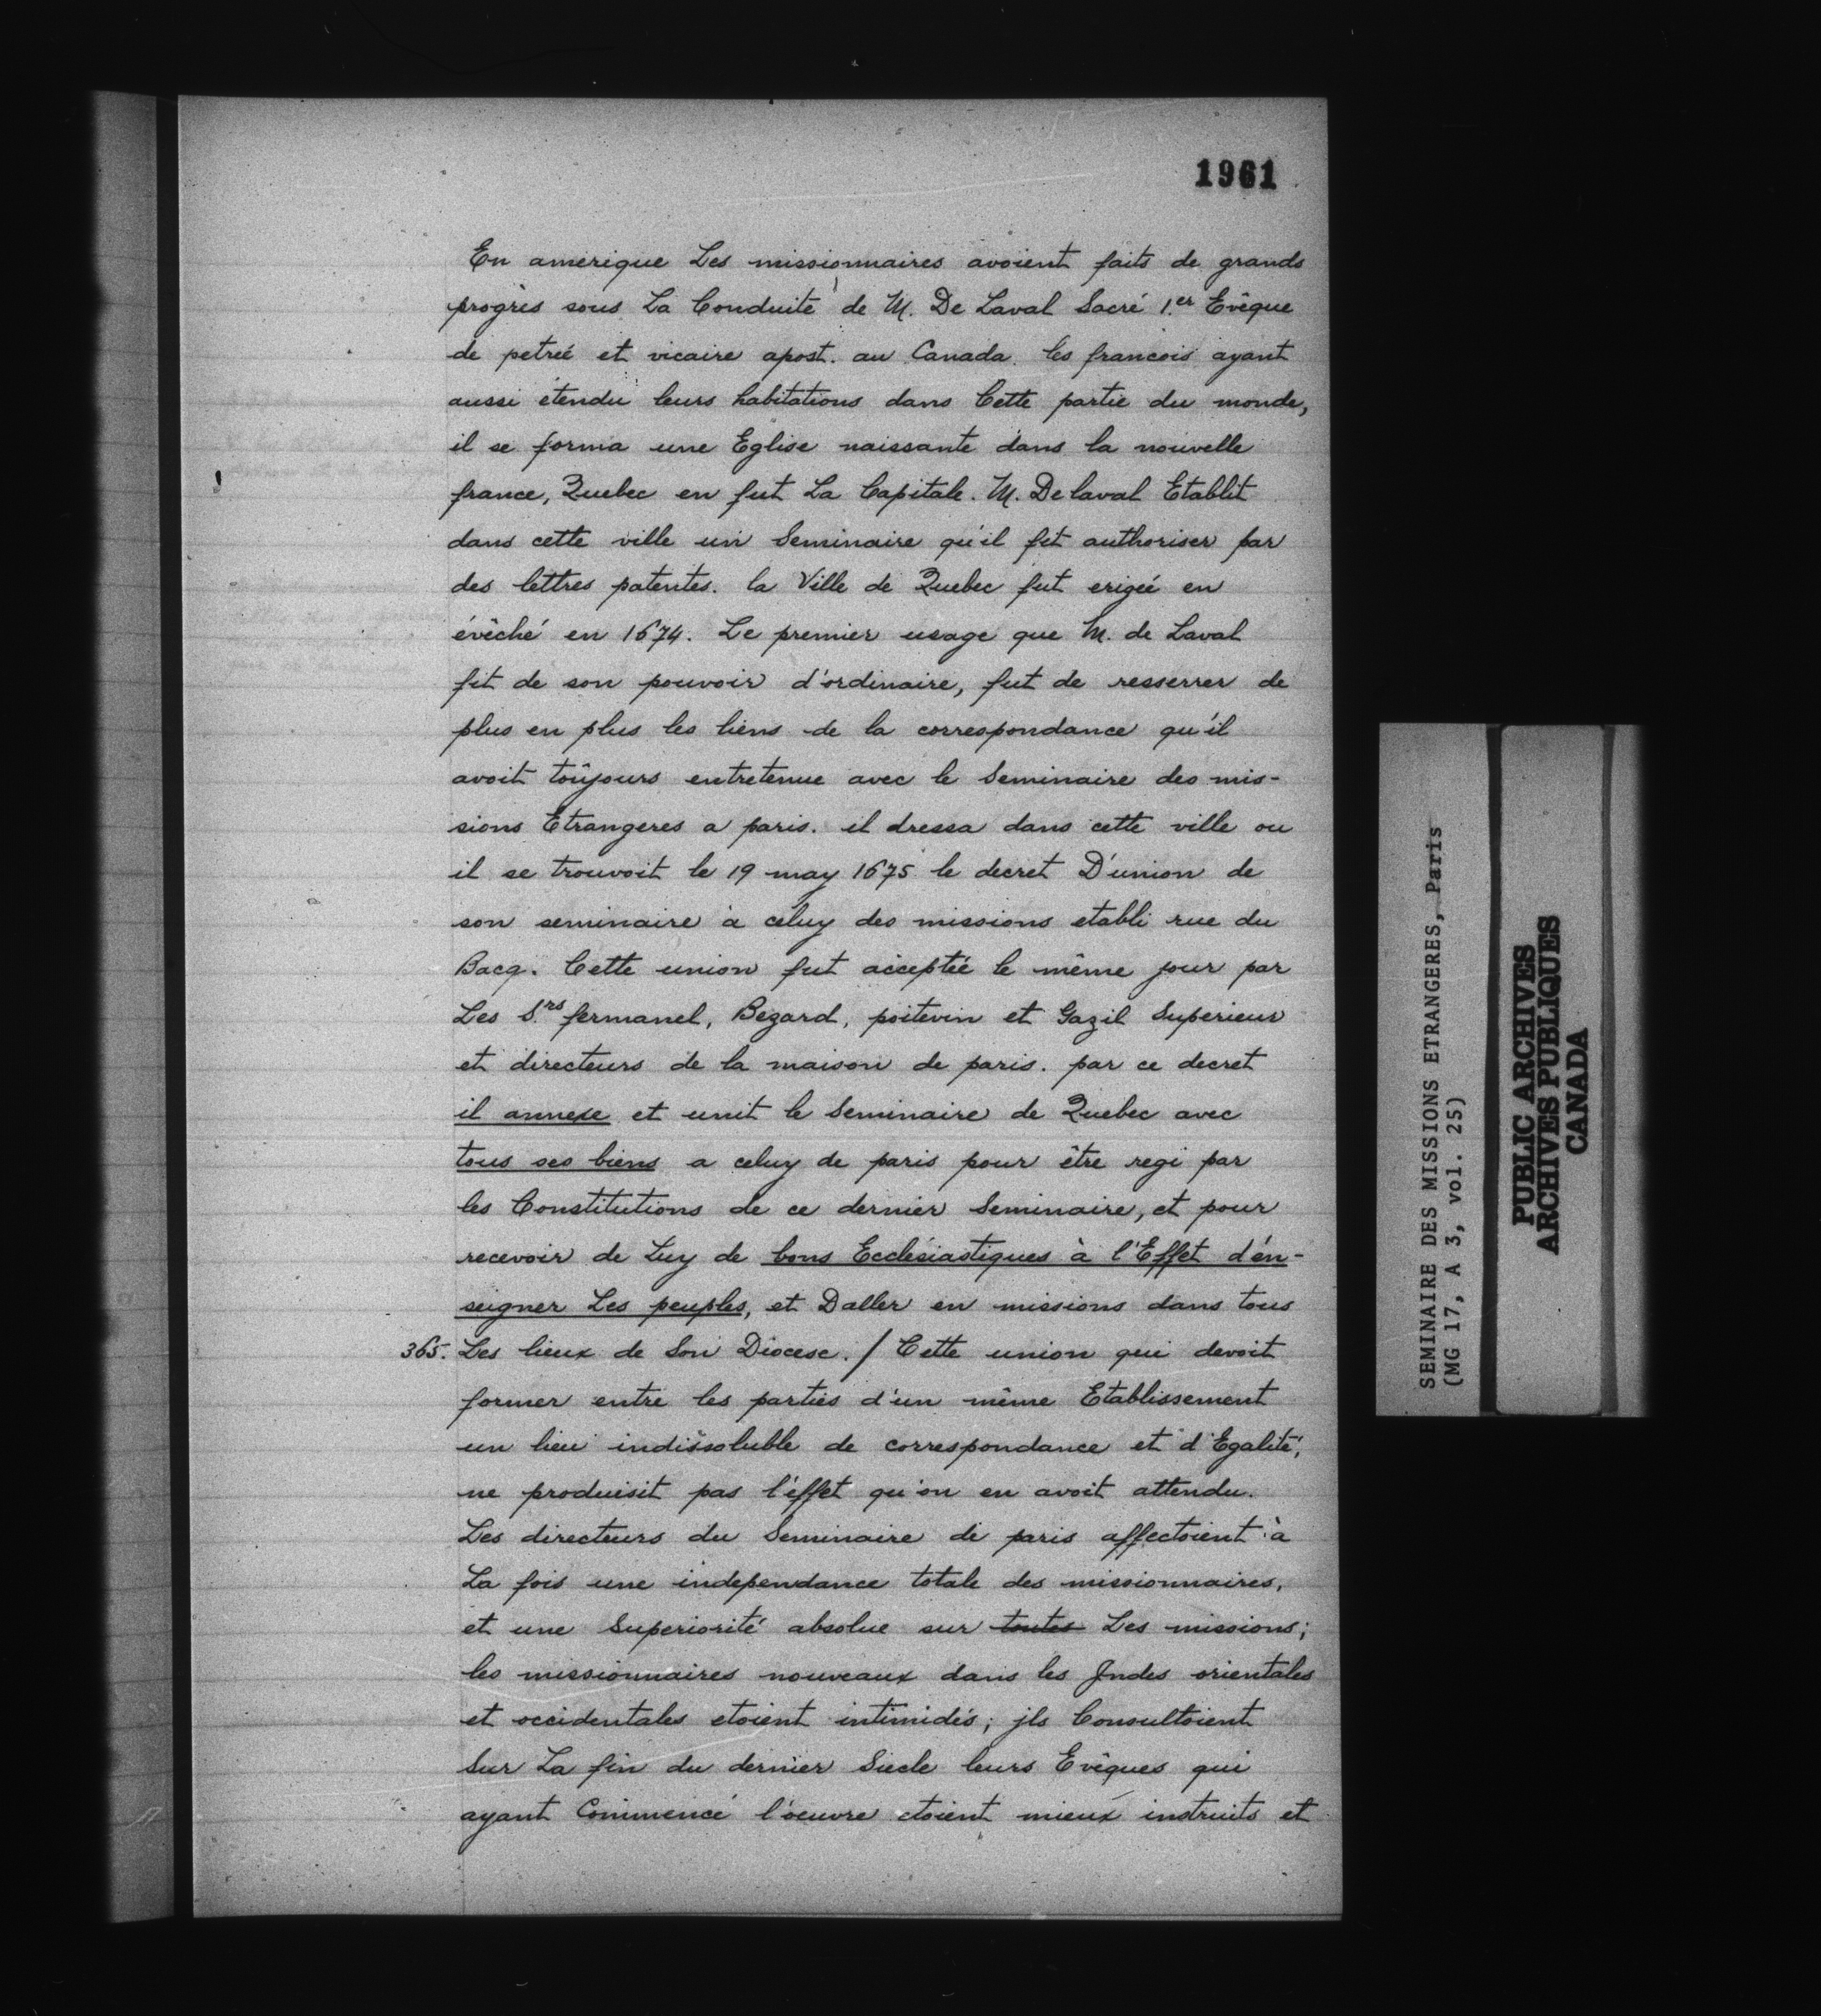 1961
En amerique Les missionnaires avoient faits de grands
progrès sous La Conduite de M. De Laval Sacré 1.er Evêque
de petreé et vicaire apost. au Canada. les francois ayant
aussi étendu leurs habitations dans Cette partie du monde,
il se forma une Eglise naissante dans la nouvelle
france, Quebec en fut La Capitale. M. De laval Etablit
dans cette ville un Seminaire qu'il fit authoriser par
des lettres patentes. la Ville de Quebec fut erigeé en
évêché en 1674. Le premier usage que M. de Laval
fit de son pouvoir d'ordinaire, fut de resserrer de
plus en plus les liens de la correspondance qu'il
avoit toûjours entretenue avec le Seminaire des mis-
sions Etrangeres a paris. il dressa dans cette ville ou
il se trouvoit le 19 may 1675 le decret D'union de
son seminaire à celuy des missions etabli rue du
Bacq. Cette union fut acceptée le même jour par
Les S.rs fermanel, Bezard, poitevin et Gazil Superieur
et directeurs de la maison de paris. par ce decret
il annexe et unit le Seminaire de Quebec avec
tous ses biens a celuy de paris pour être regi par
les Constitutions de ce dernier Seminaire, et pour
recevoir de Luy de bons Ecclésiastiques à l'Effet d'en-
seigner Les peuples, et Daller en missions dans tous
365. Les lieux de Son Diocese. / Cette union qui devoit
former entre les parties d'un même Etablissement
un lien indissoluble de correspondance et d'Egalité,
ne produisit pas l'effet qu'on en avoit attendu.
Les directeurs du Seminaire de paris affectoient à
La fois une independance totale des missionnaires,
et une Superiorité absolue sur toutes Les missions;
les missionnaires nouveaux dans les Jndes orientales
et occidentales etoient intimidés; jls Consultoient
Sur La fin du dernier Siecle leurs Evêques qui
ayant Commencé l'oeuvre etoient mieux instruits et
SEMINAIRE DES MISSIONS ETRANGERES, Paris
(MG 17, A 3, vol. 25)
PUBLIC ARCHIVES
ARCHIVES PUBLIQUES
CANADA